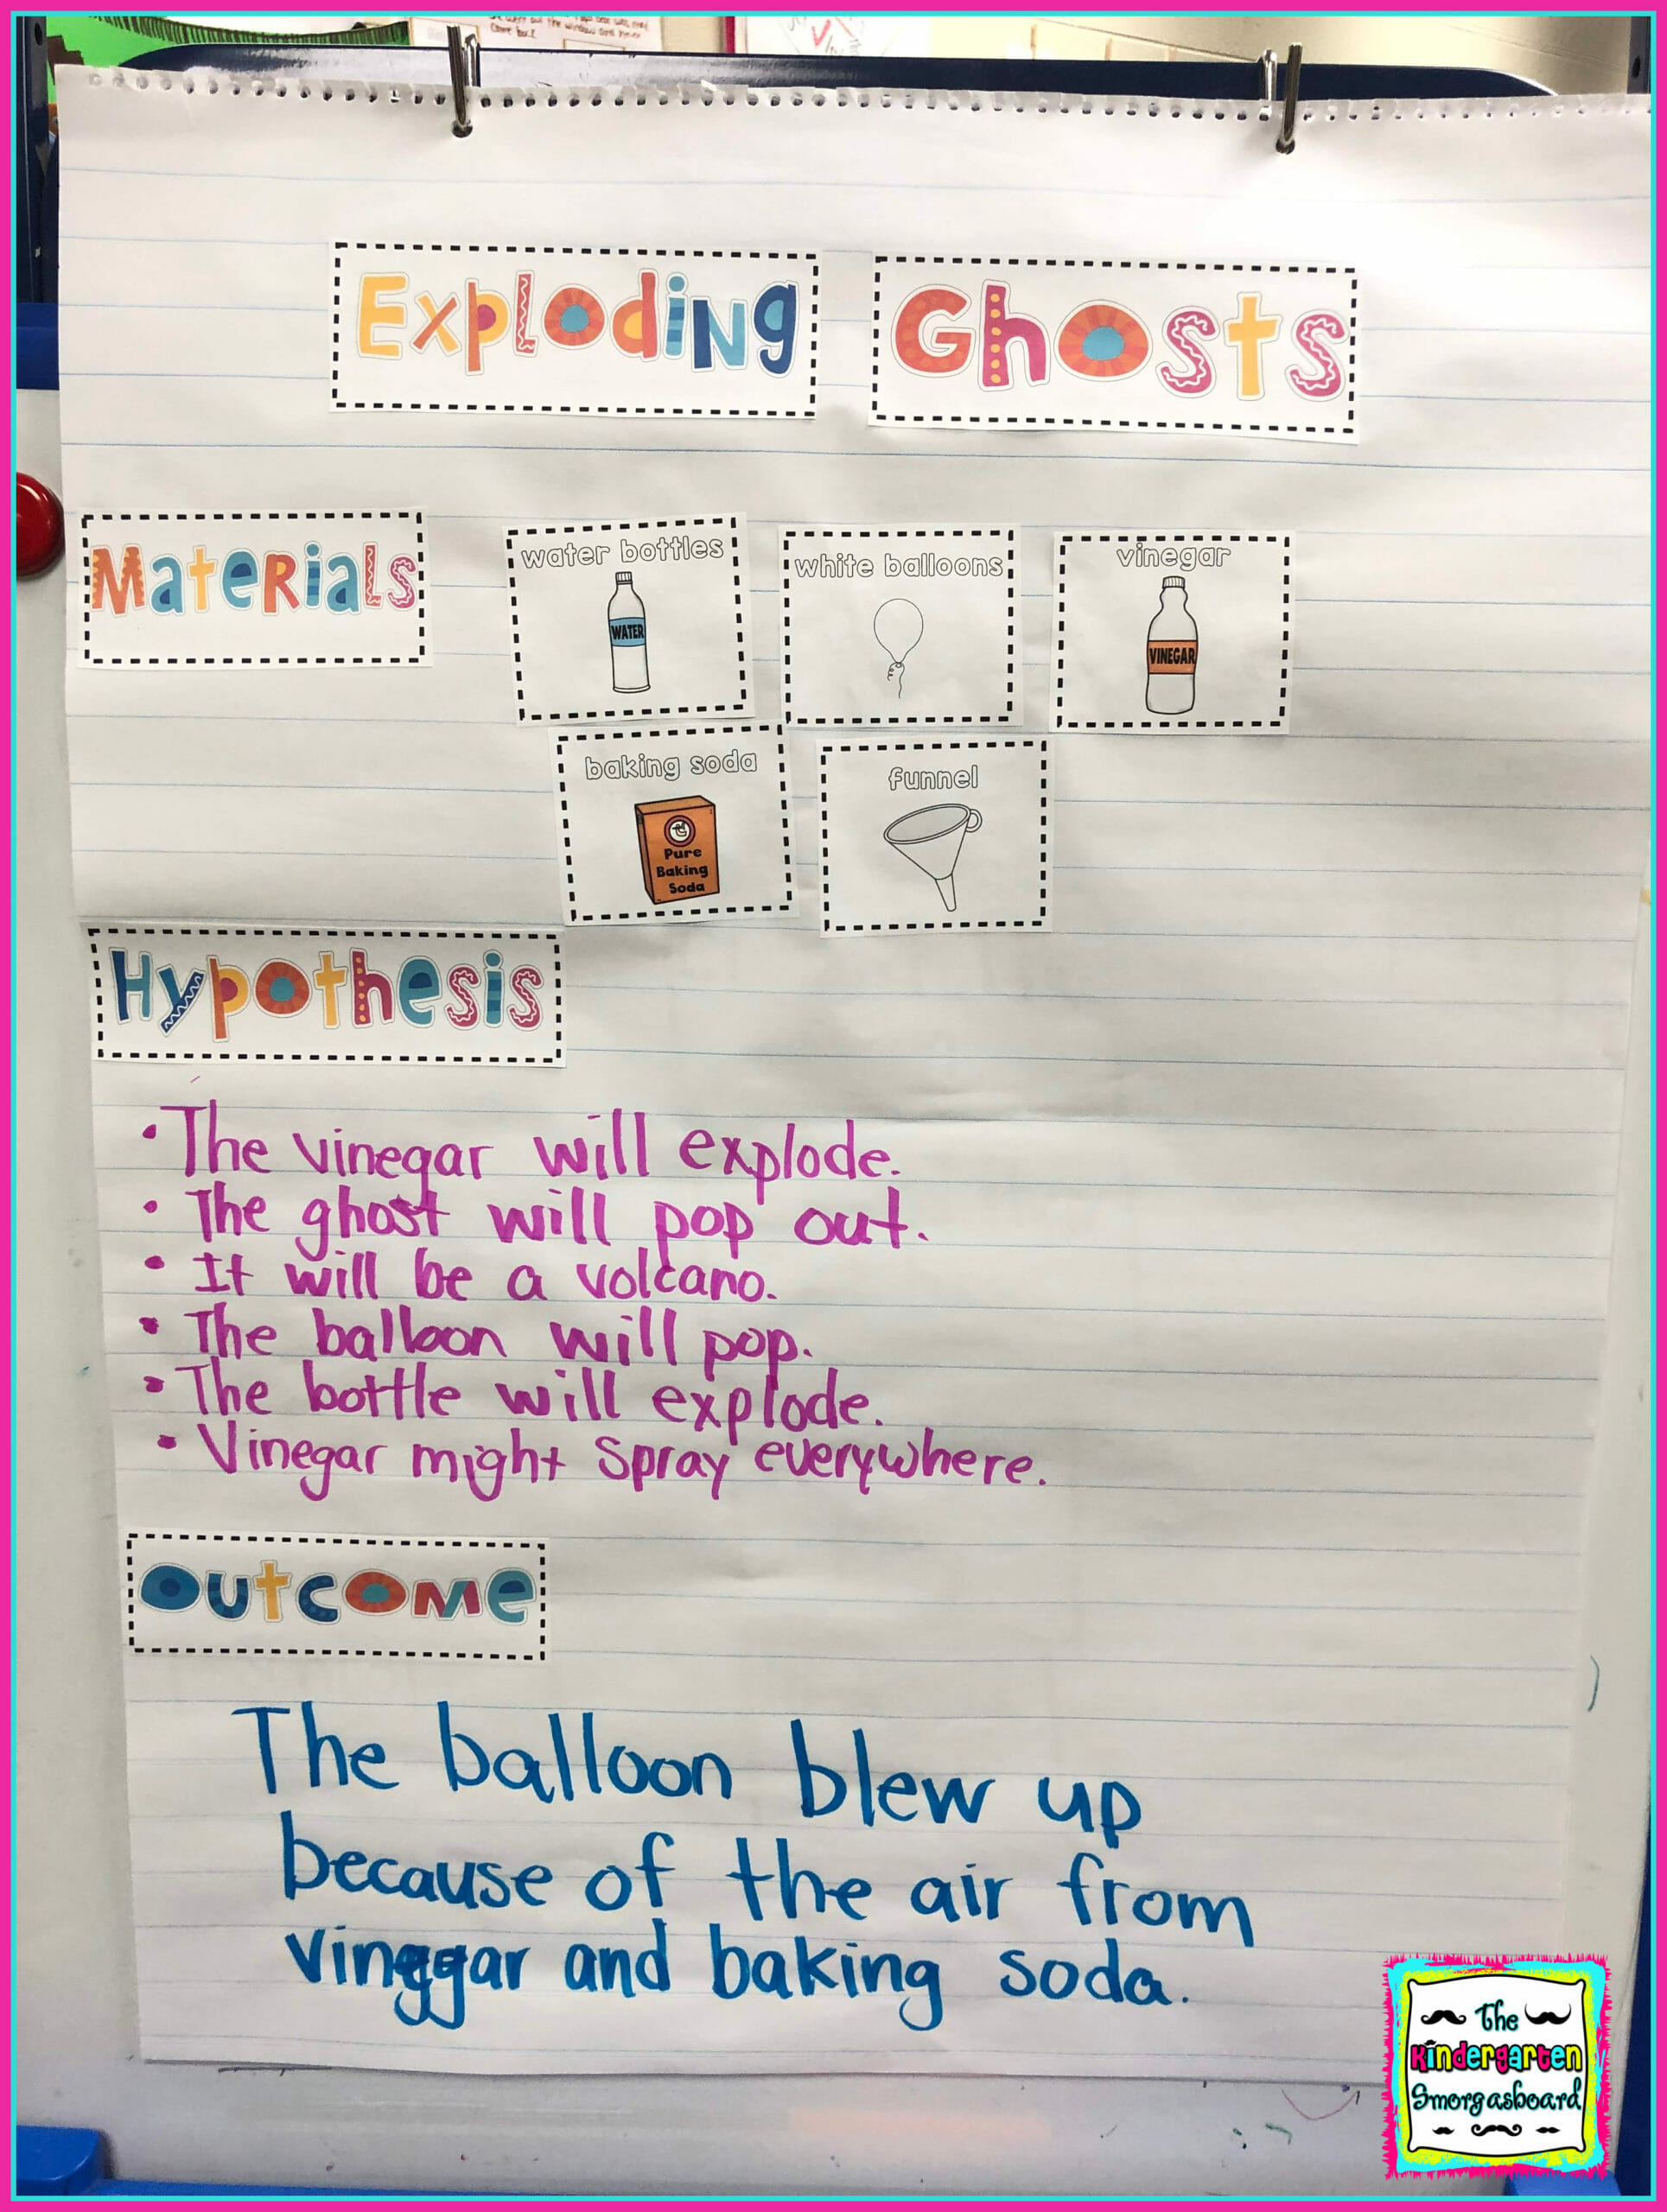 come back
Exploding Ghosts
Materials
water bottles
WATER
white balloons
vinegar
VINEGAR
baking soda
Pure
Baking
Soda
funnel
Hypothesis
• The vinegar will explode.
• The ghost will pop out.
• It will be a volcano.
• The balloon will pop.
• The bottle will explode.
• Vinegar might spray everywhere.
Outcome
The balloon blew up
because of the air from
vineggar and baking soda.
The
Kindergarten
Smorgasboard